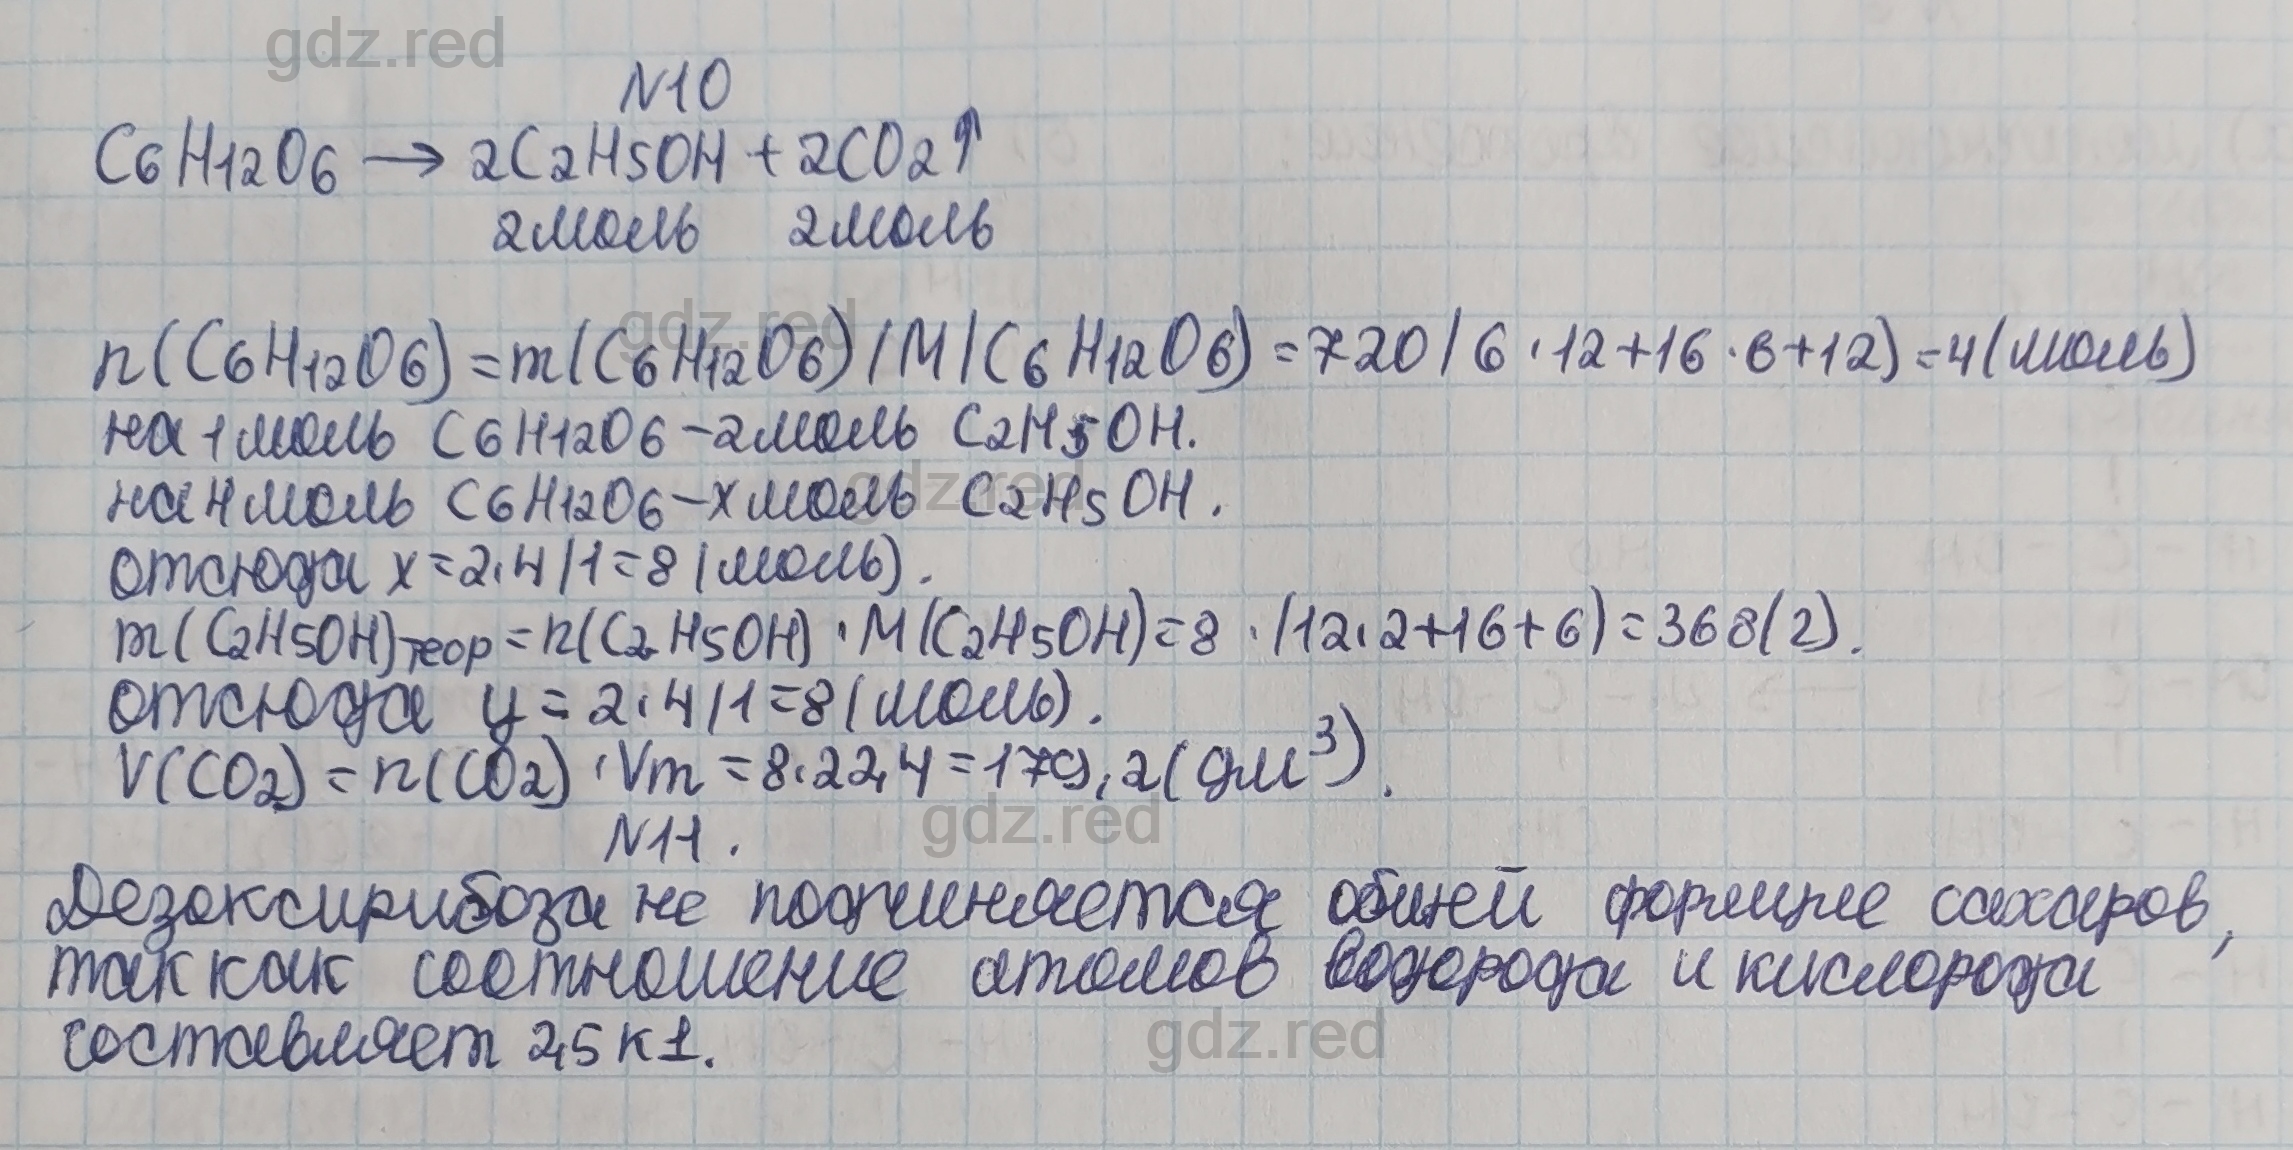 gdz.red
N10
C6H12O6 → 2C2H5OH + 2CO2↑
2моль 2моль
gdz.red
n(C6H12O6) = m(C6H12O6) / M(C6H12O6) = 720 / 6·12+16·6+12) = 4(моль)
на 1 моль C6H12O6 – 2моль C2H5OH.
gdz.red
на 4 моль C6H12O6 – x моль C2H5OH.
отсюда x = 2·4/1 = 8 (моль).
m(C2H5OH)теор = n(C2H5OH) · M(C2H5OH) = 8 · (12·2+16+6) = 368(г).
отсюда y = 2·4/1 = 8 (моль).
V(CO2) = n(CO2) · Vm = 8·22,4 = 179,2 (дм³).
gdz.red
N11.
Дезоксирибоза не подчиняется общей формуле сахаров,
так как соотношение атомов водорода и кислорода
gdz.red
составляет 2,5 к 1.